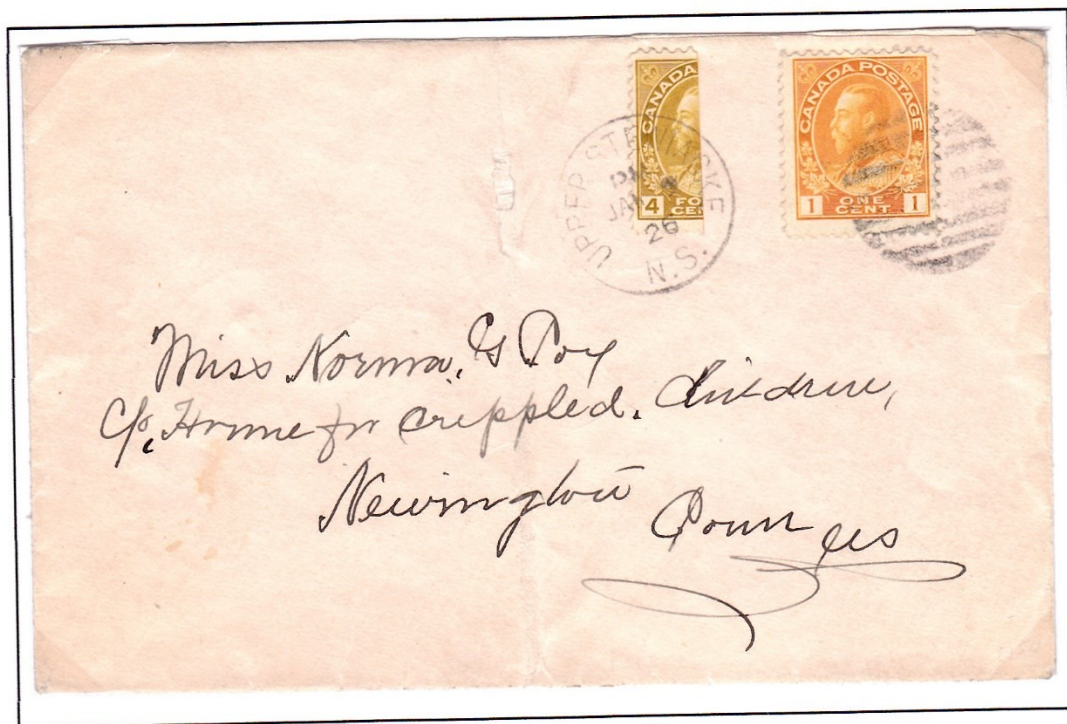 CANADA
4 FO
CE
CANADA POSTAGE
1 ONE CENT 1
UPPER STEWIACKE
PM
JAN
26
N.S.
Miss Norma, G
C/o, Home for crippled. Children,
Newington Conn
US